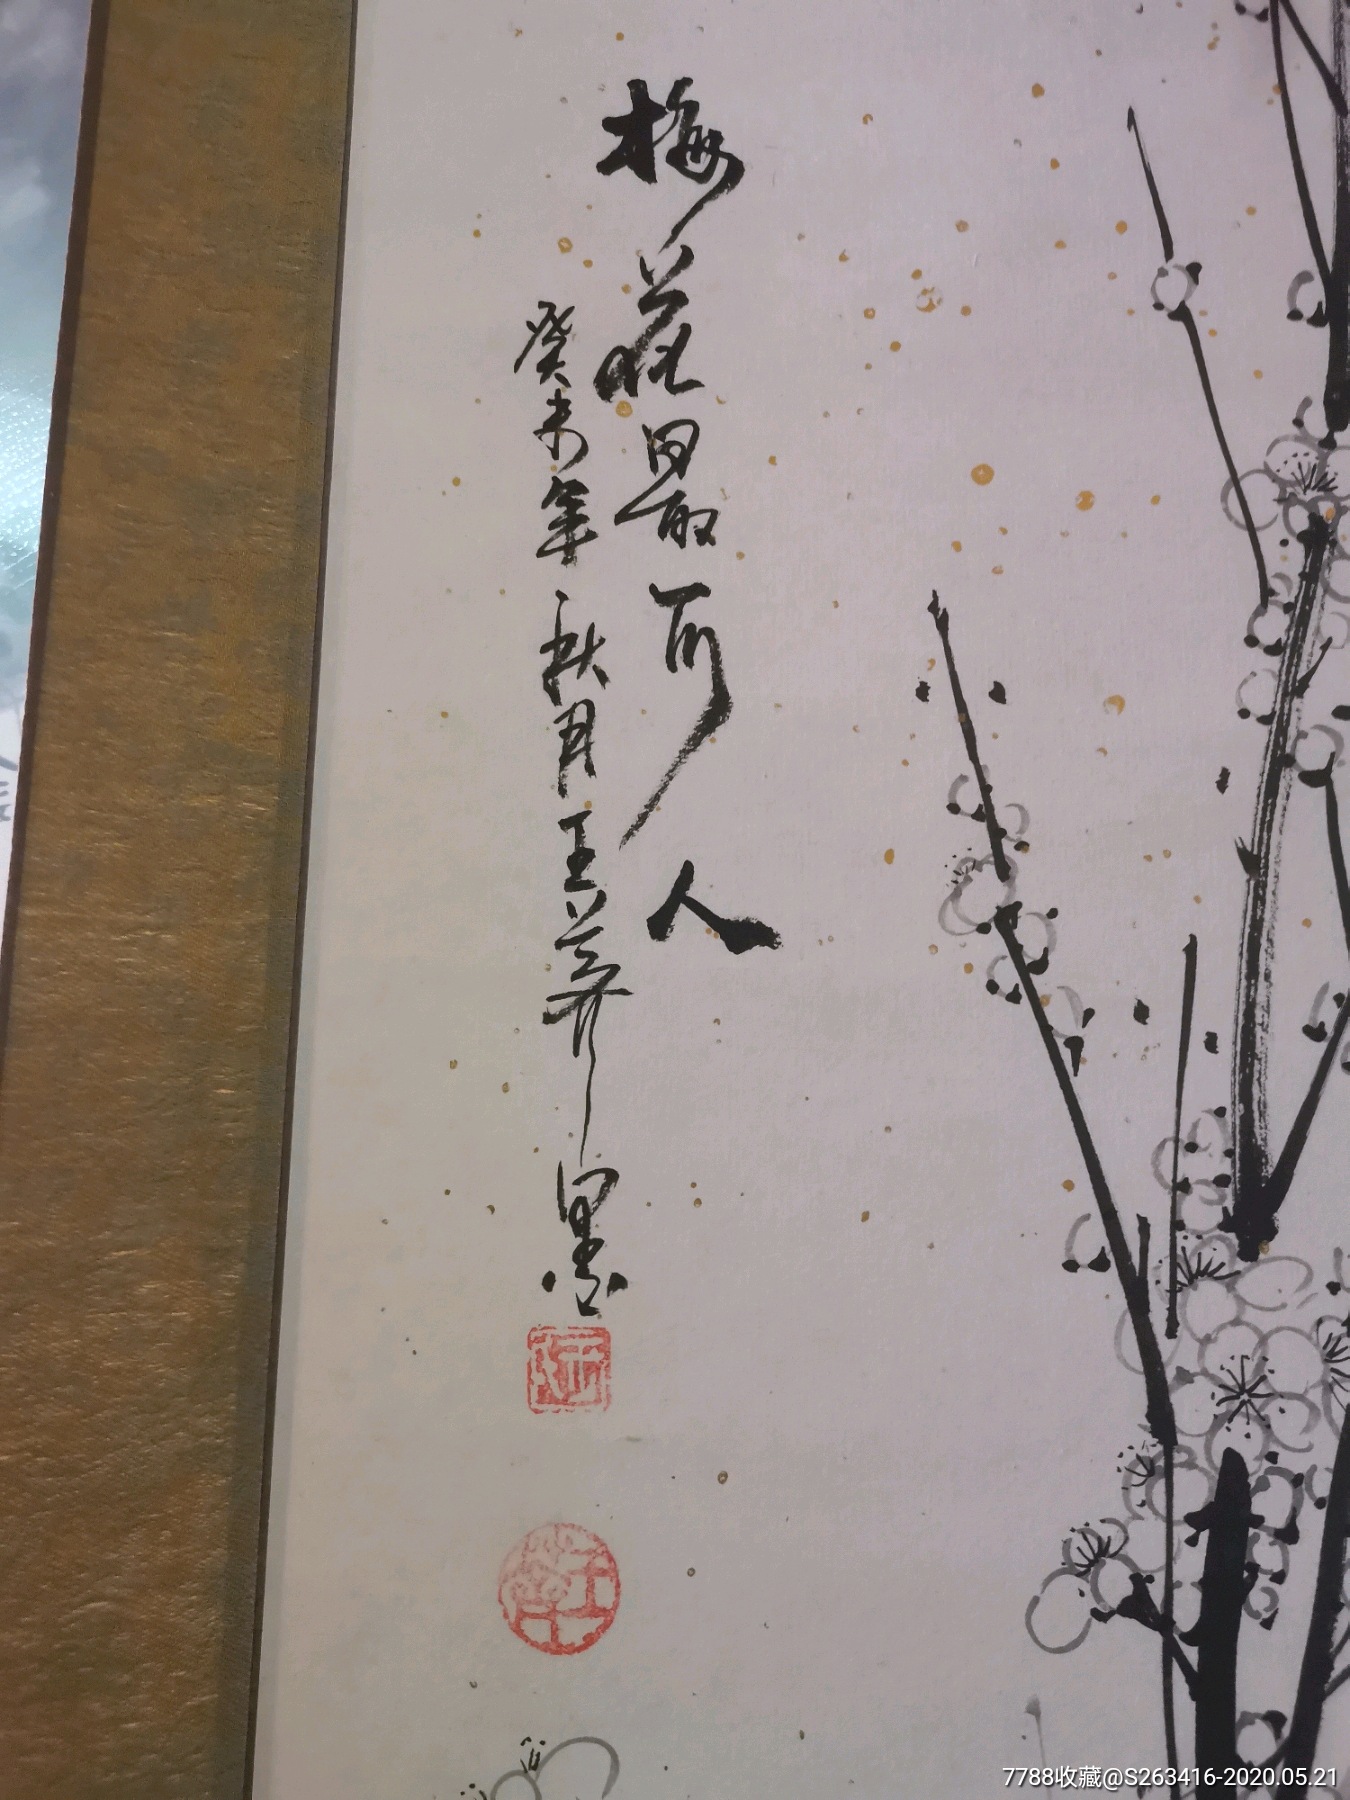 梅花最可人
癸未年秋月王养田墨
7788收藏@S263416-2020.05.21